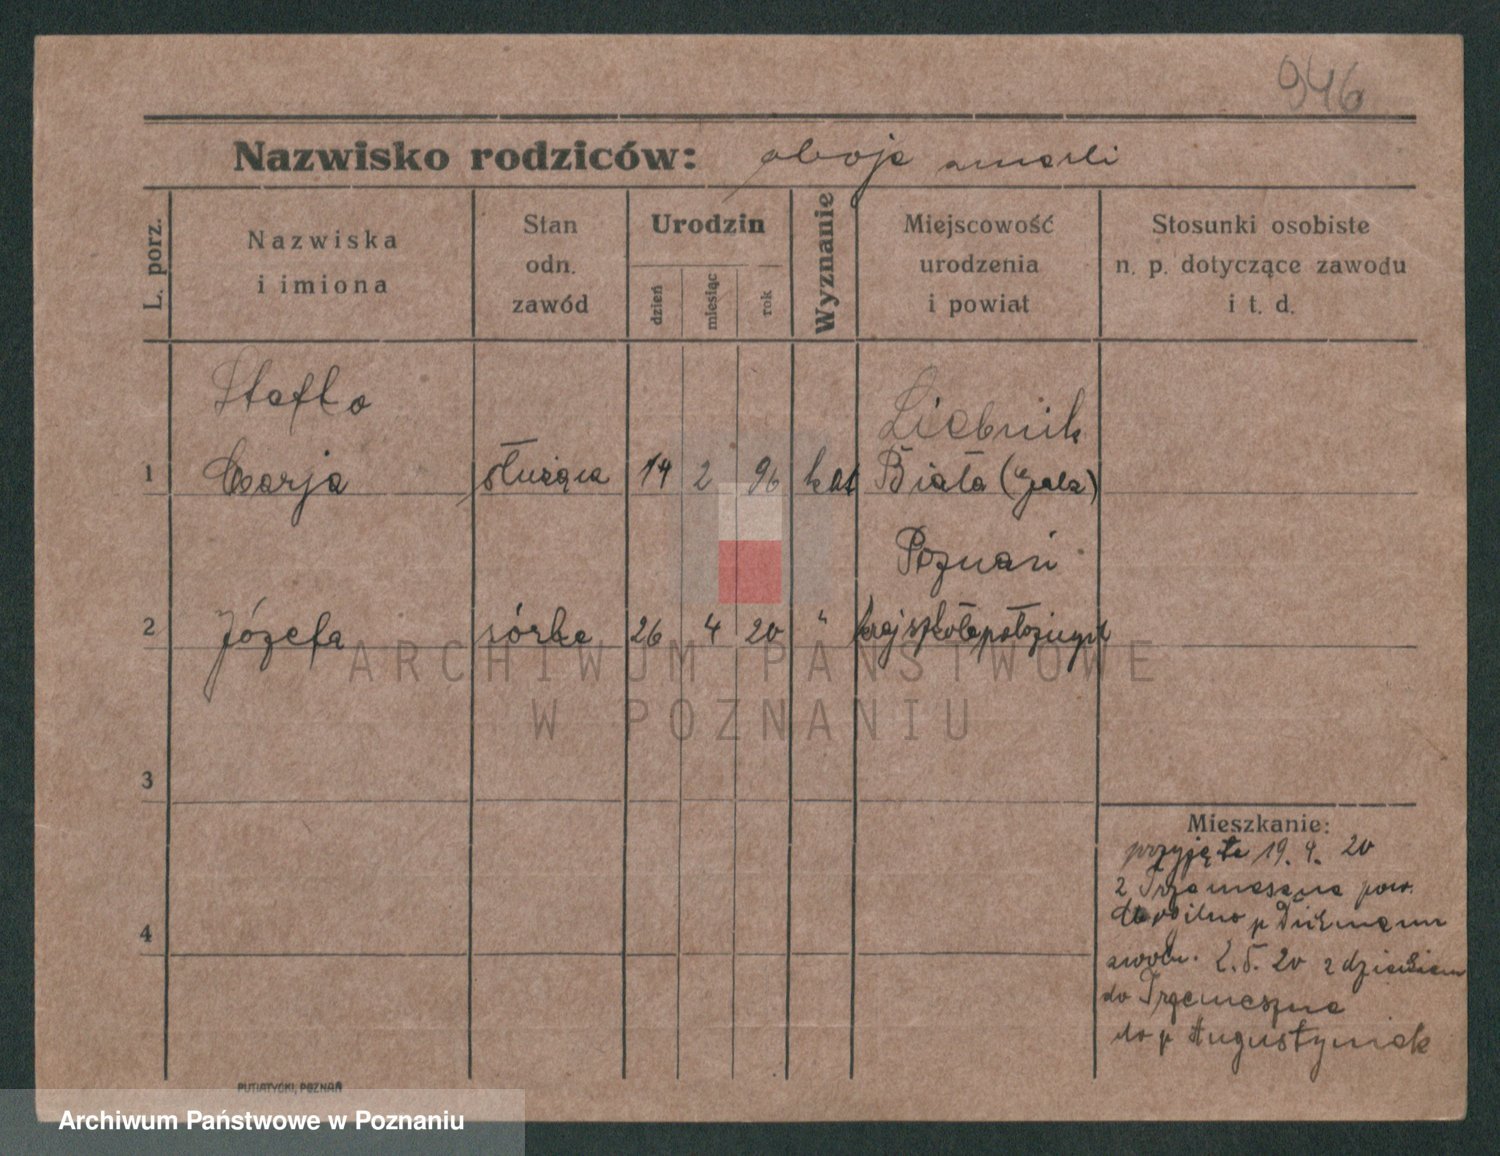 946
Nazwisko rodziców: oboje zmarli
L. porz.
Nazwiska
i imiona
Stan
odn.
zawód
Urodzin
dzień
miesiąc
rok
Wyznanie
Miejscowość
urodzenia
i powiat
Stosunki osobiste
n. p. dotyczące zawodu
i t. d.
Stafko
Liebnik
1 Marja służąca 14 2 96 kat Biała (Galz)
Poznań
2 Józefa córka 26 4 20 " kraj szkoła położnych
3
4
Mieszkanie:
przyjęta 19. 4. 20
z Trzemeszna pow.
p
zwoln. 2.5. 20 z dzieckiem
do Trzemeszna
do p Augustyniak
PUTIATYCKI, POZNAŃ
ARCHIWUM PAŃSTWOWE
W POZNANIU
Archiwum Państwowe w Poznaniu